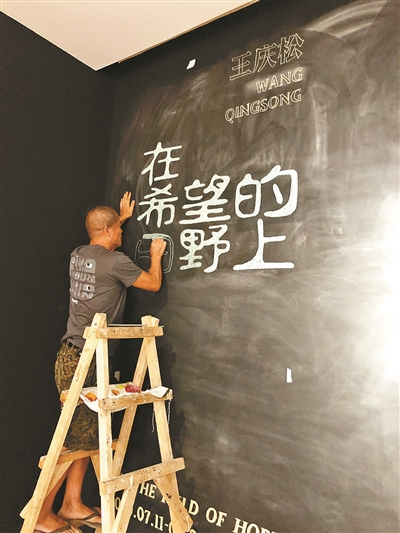 王庆松
WANG
QINGSONG
在
希望的
田野上
THE FIELD OF HOPE
.07.11-